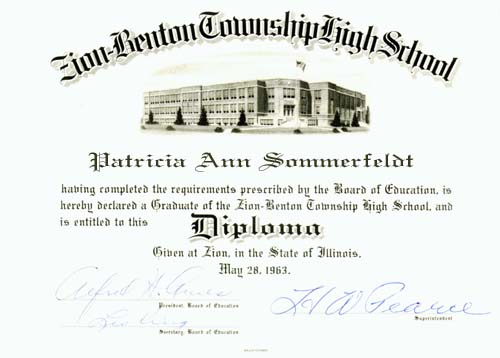 Zion-Benton Township High School
Patricia Ann Sommerfeldt
having completed the requirements prescribed by the Board of Education, is
hereby declared a Graduate of the Zion-Benton Township High School, and
is entitled to this Diploma
Given at Zion, in the State of Illinois,
May 28, 1963.
Alfred H.
President, Board of Education
H W Pearce
Superintendent
Secretary, Board of Education